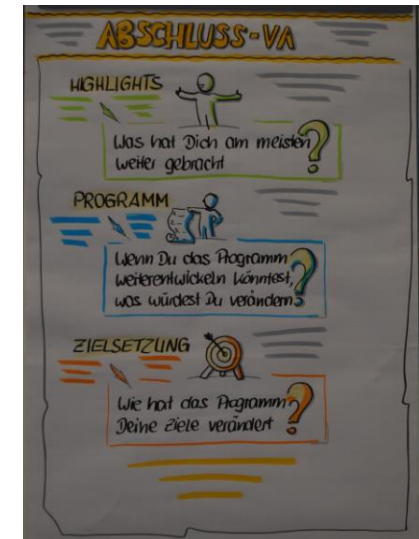 ABSCHLUSS-VA
HIGHLIGHTS
Was hat Dich am meisten
weiter gebracht ?
PROGRAMM
Wenn Du das Programm
weiterentwickeln könntest,
was würdest Du verändern ?
ZIELSETZUNG
Wie hat das Programm
Deine Ziele verändert ?